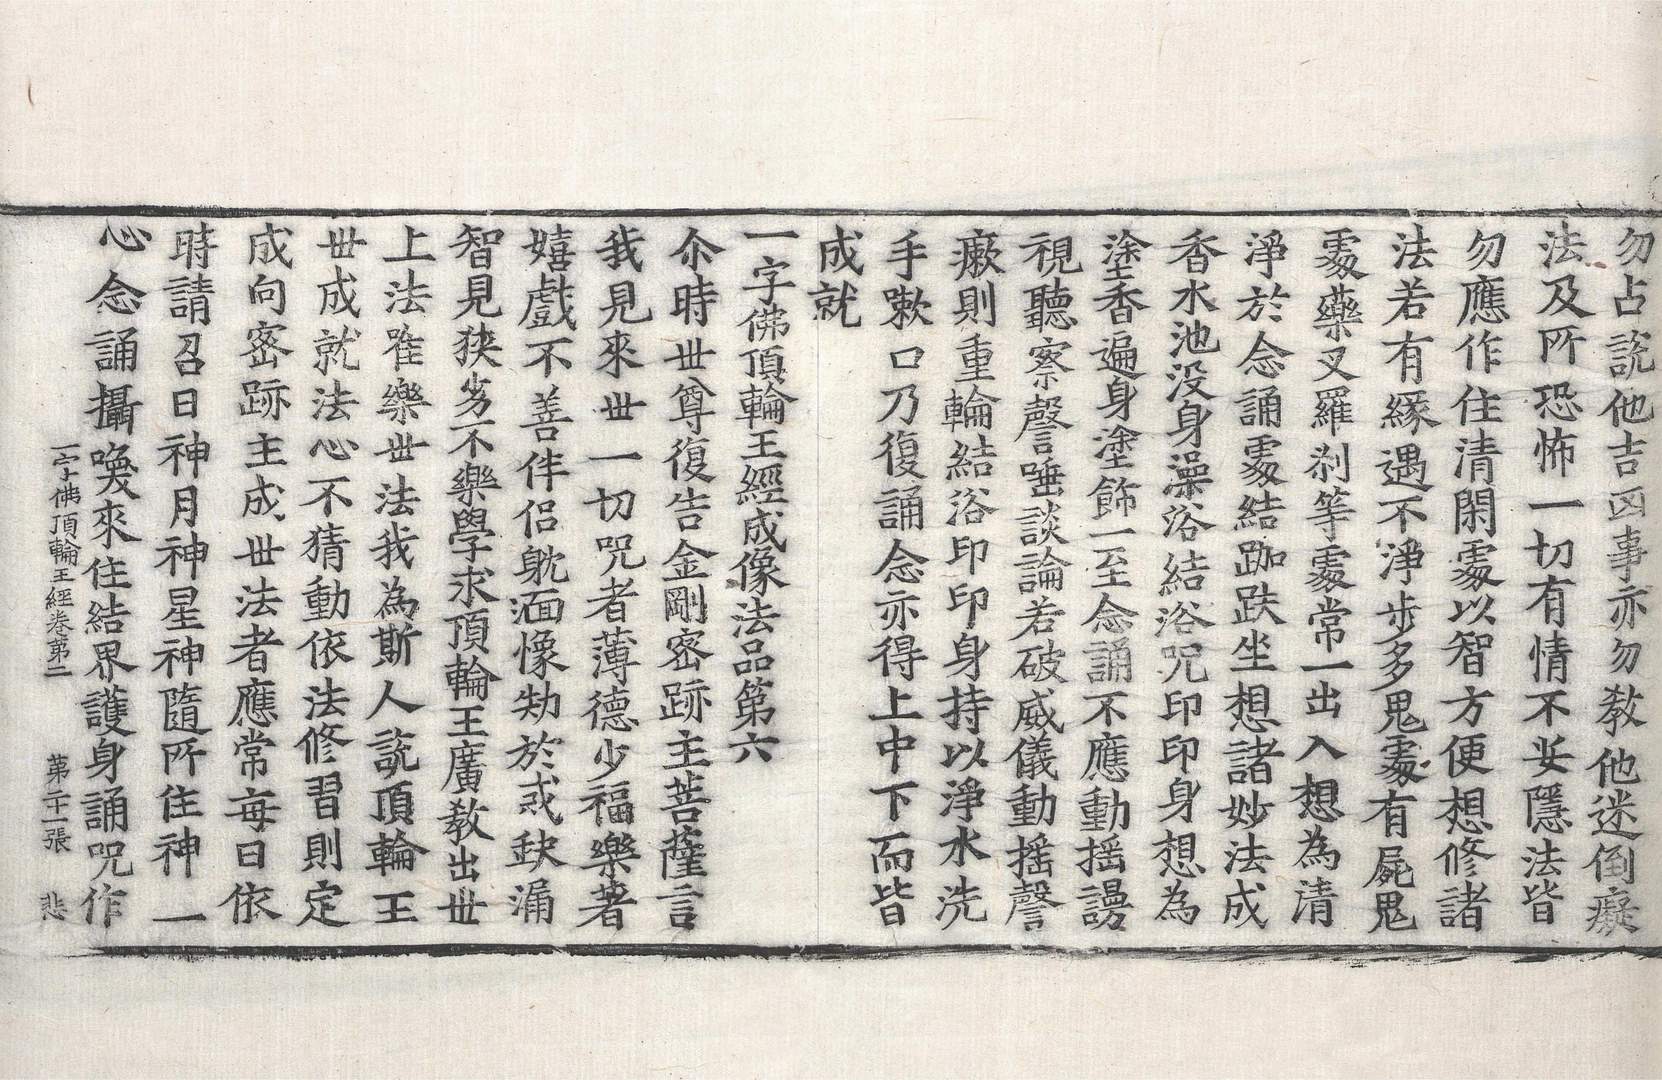 勿占說他吉凶事亦勿教他迷倒癡
法及所恐怖一切有情不妄隱法皆
勿應作住清閑處以智方便想修諸
法若有緣遇不淨步多鬼處有屍鬼
處藥叉羅剎等處常一出入想為清
淨於念誦處結跏趺坐想諸妙法成
香水池没身澡浴結浴咒印印身想為
塗香遍身塗飾一至念誦不應動搖謾
視聽察謦唾談論若破威儀動搖謦
瘶則重輪結浴印印身持以淨水洗
手嗽口乃復誦念亦得上中下而皆
成就
一字佛頂輪王經成像法品第六
尒時世尊復告金剛密跡主菩薩言
我見來世一切咒者薄德少福樂著
嬉戲不善伴侶躭湎懷劾於或缺漏
智見狹劣不樂學求頂輪王廣教出世
上法唯樂世法我為斯人說頂輪王
世成就法心不猜動依法修習則定
成向密跡主成世法者應常每日依
時請召日神月神星神隨所住神一
心念誦攝喚來住結界護身誦咒作
一字佛頂輪王經卷第二 第二十一張 悲